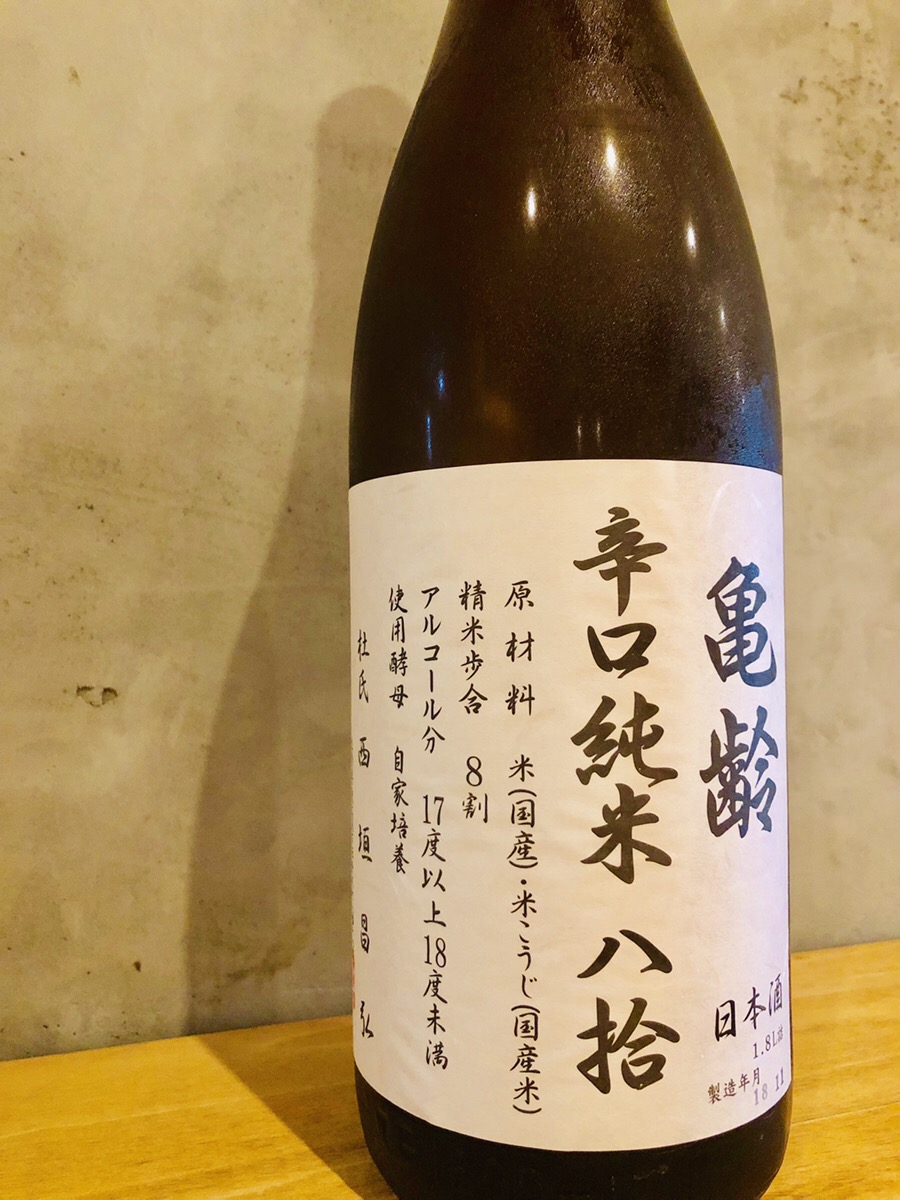 亀齢
日本酒
1.8L詰
製造年月
18 11
辛口純米 八拾
原材料 米(国産)・米こうじ(国産米)
精米歩合 8割
アルコール分 17度以上18度未満
使用酵母 自家培養
杜氏 西垣昌弘